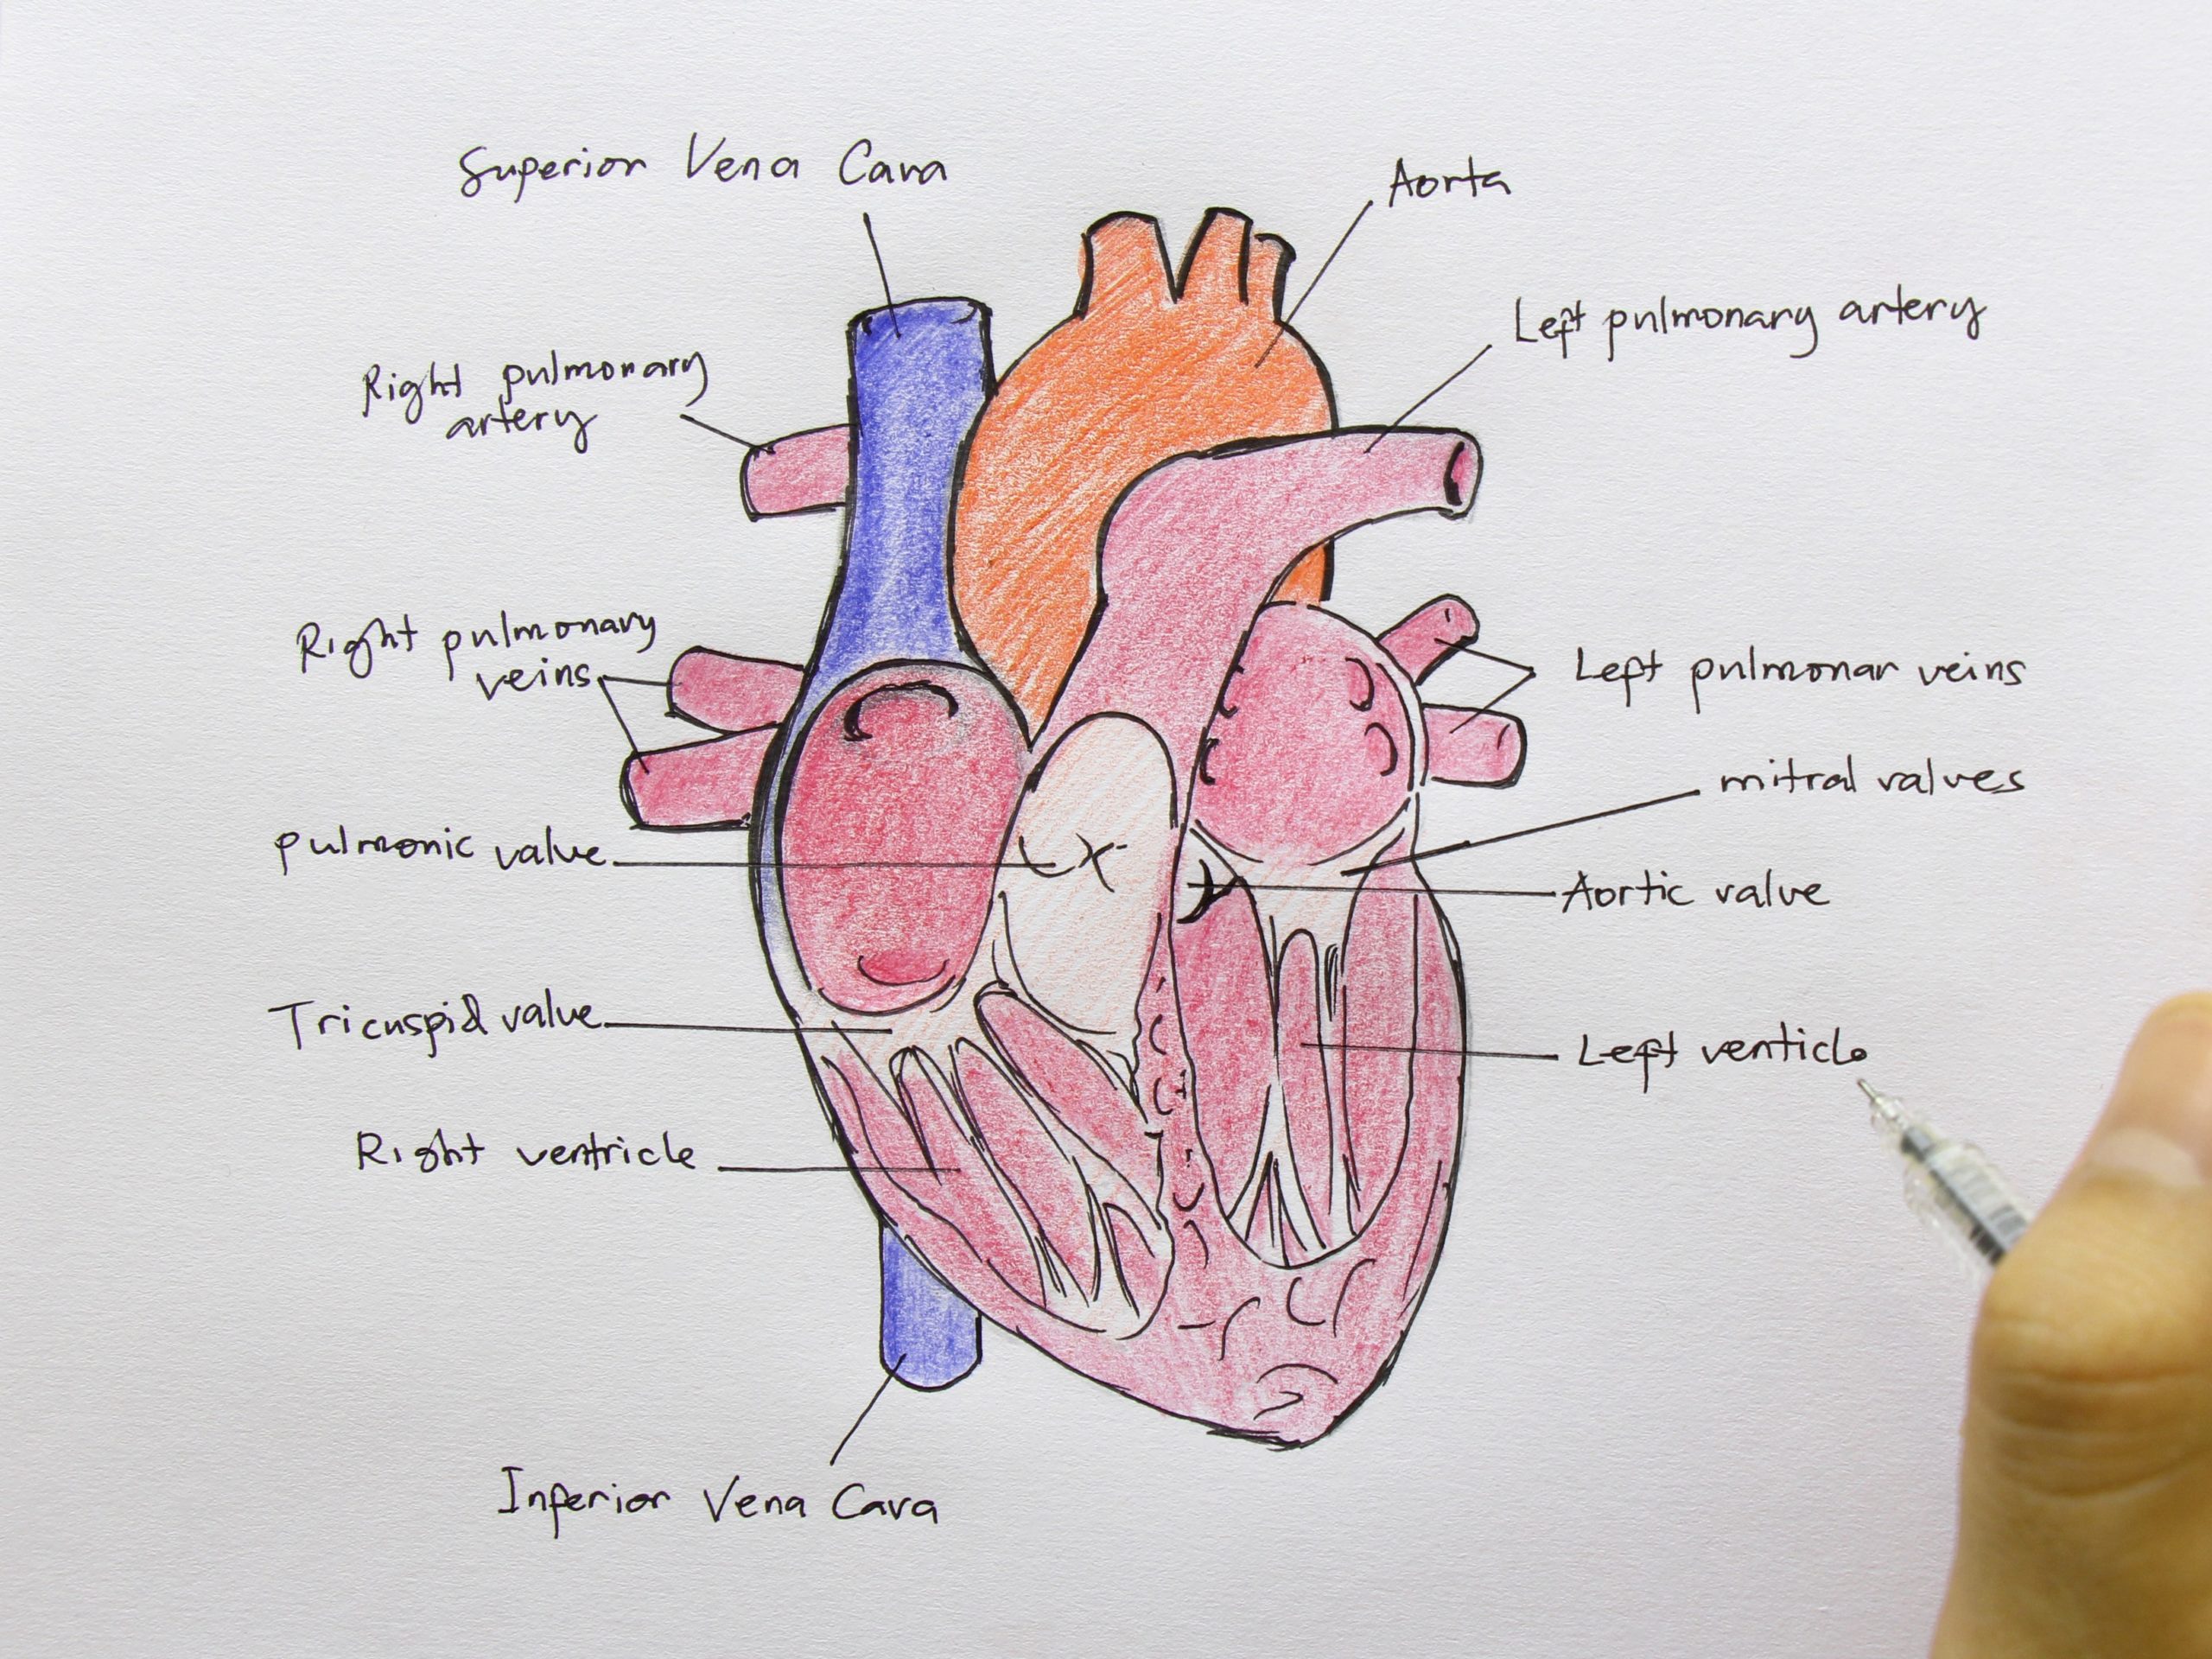 Superior Vena Cava
Aorta
Left pulmonary artery
Right pulmonary
artery
Right pulmonary
veins
Left pulmonar veins
mitral valves
pulmonic valve
Aortic valve
Tricuspid valve
Left venticle
Right ventricle
Inferior Vena Cava